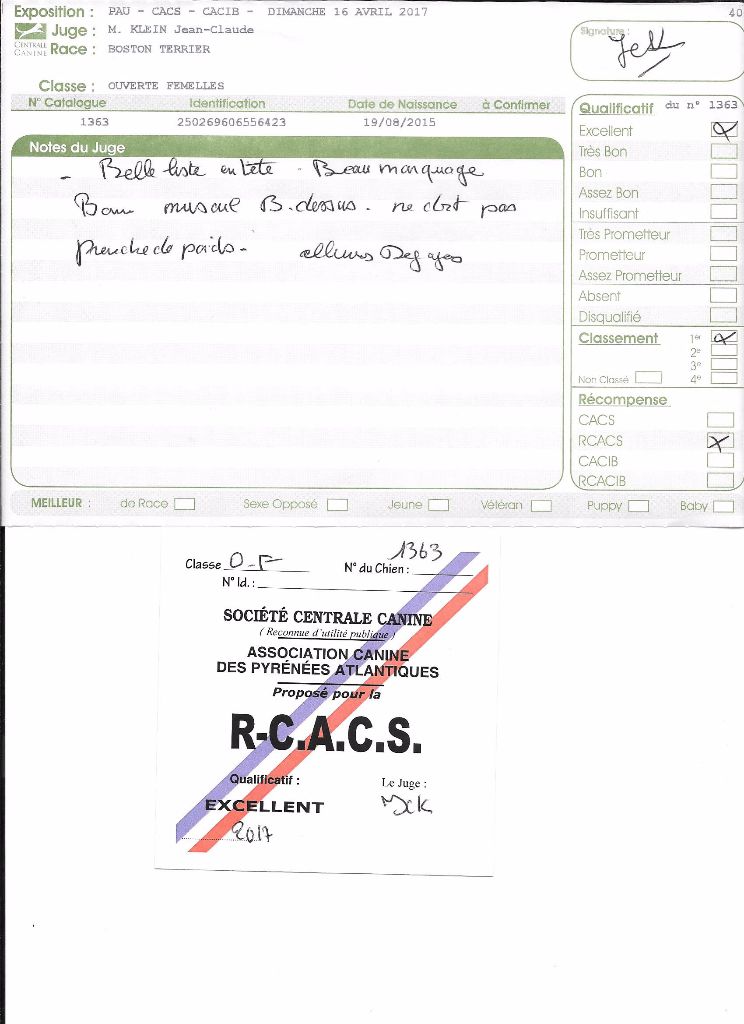 Exposition : PAU - CACS - CACIB - DIMANCHE 16 AVRIL 2017
40
Juge : M. KLEIN Jean-Claude
CENTRALE CANINE
Race : BOSTON TERRIER
Signature :
Classe : OUVERTE FEMELLES
N° Catalogue Identification Date de Naissance à Confirmer
1363 250269606556423 19/08/2015
Notes du Juge
- Belle liste en tête - Beau marquage
Bon museau B. dessus. ne doit pas
prendre de poids - allures Degagées
Qualificatif du n° 1363
Excellent X
Très Bon
Bon
Assez Bon
Insuffisant
Très Prometteur
Prometteur
Assez Prometteur
Absent
Disqualifié
Classement 1er X
2e
3e
Non Classé 4e
Récompense
CACS
RCACS X
CACIB
RCACIB
MEILLEUR : de Race Sexe Opposé Jeune Vétéran Puppy Baby
Classe O-F N° du Chien : 1363
N° Id. :
SOCIÉTÉ CENTRALE CANINE
( Reconnue d'utilité publique )
ASSOCIATION CANINE
DES PYRÉNÉES ATLANTIQUES
Proposé pour la
R-C.A.C.S.
Qualificatif : Le Juge :
EXCELLENT
2017